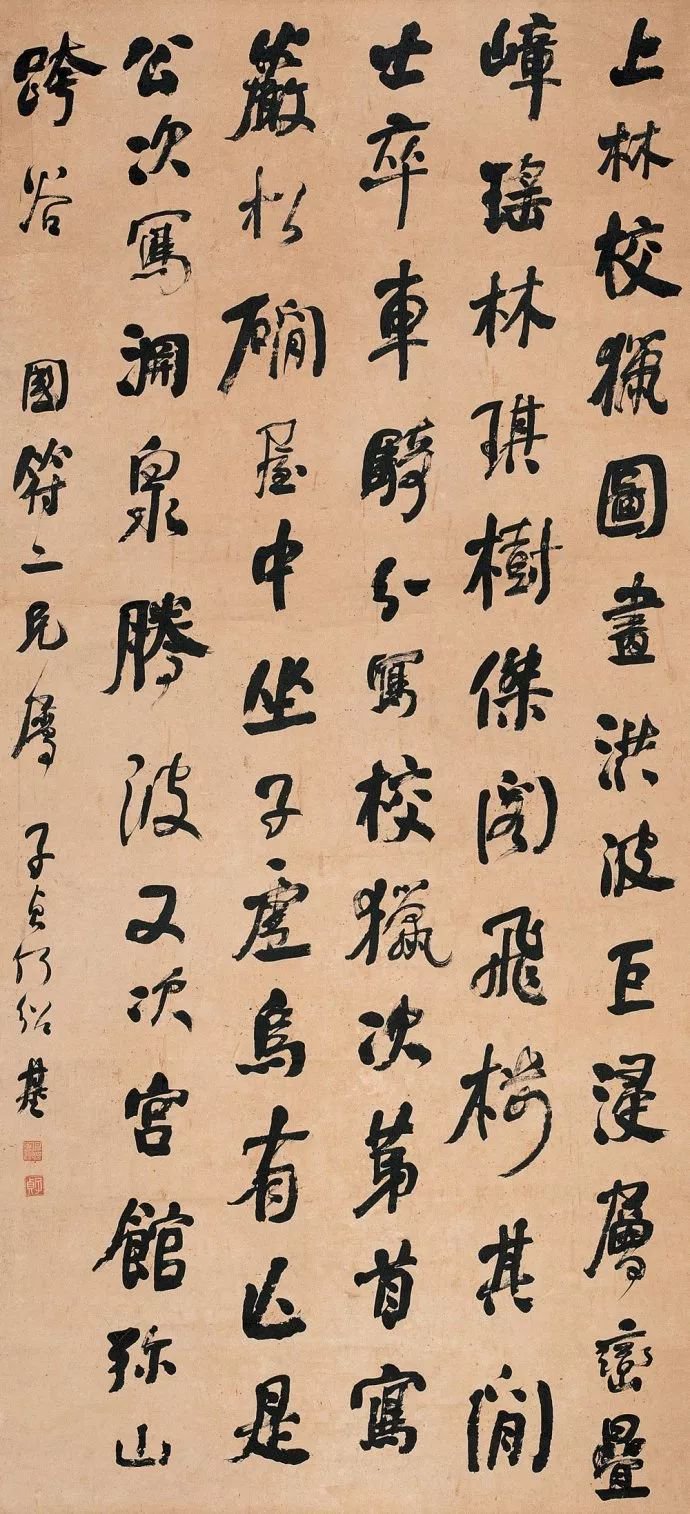 上林校獵圖畫洪波巨浸層巒疊
嶂瑤林琪樹傑閣飛橋其閒
士卒車騎分寫校獵次第首寫
巖松磵屋中坐子虛烏有亡是
公次寫淵泉騰波又次宮館弥山
跨谷 國符二兄屬 子貞何紹基